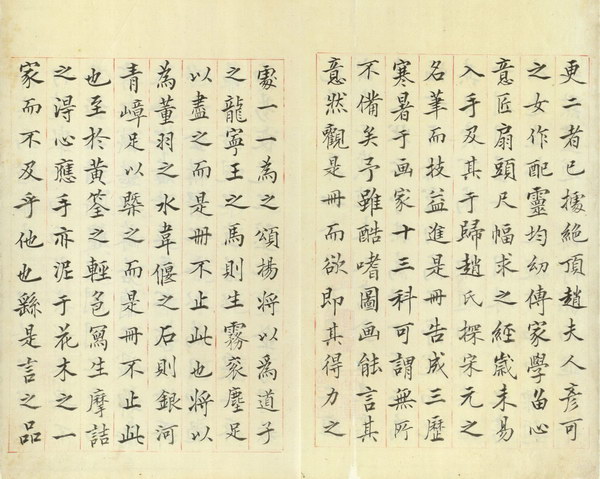 更二者已據絕頂趙夫人彦可
之女作配靈均幼傳家學留心
意匠扇頭尺幅求之經歲未易
入手及其于歸趙氏探宋元之
名筆而技益進是冊告成三歷
寒暑于画家十三科可謂無所
不備矣予雖酷嗜圖画能言其
意然觀是冊而欲即其得力之
處一一為之頌揚將以為道子
之龍寧王之馬則生霧衮塵足
以盡之而是冊不止此也將以
為董羽之水韋偃之石則銀河
青嶂足以槩之而是冊不止此
也至於黄筌之輕色寫生摩詰
之得心應手亦泥于花木之一
家而不及乎他也繇是言之品